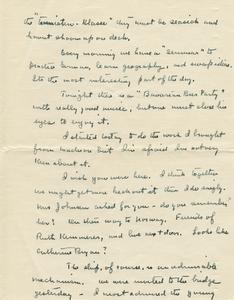 the "Touristen-Klasse" they must be seasick and
haven't shown up on deck.
Every morning we have a "seminar" to
practice German, learn geography, and swap ideas.
Its the most interesting part of the day.
Tonight there is a "Bavarian Beer Party"
with really good music, but one must close his
eyes to enjoy it.
I started today to do the work I brought
from
then about it.
I wish you were here. I think together
we might get more heads out of this than singly.
Mrs Johnson asked for you - do you remember
her? On their way to Norway. Friends of
Ruth and live next door. Looks like
Catherine Bryan?
The ship, of course, is an admirable
mechanism. We were invited to the bridge
yesterday - I most admired the young